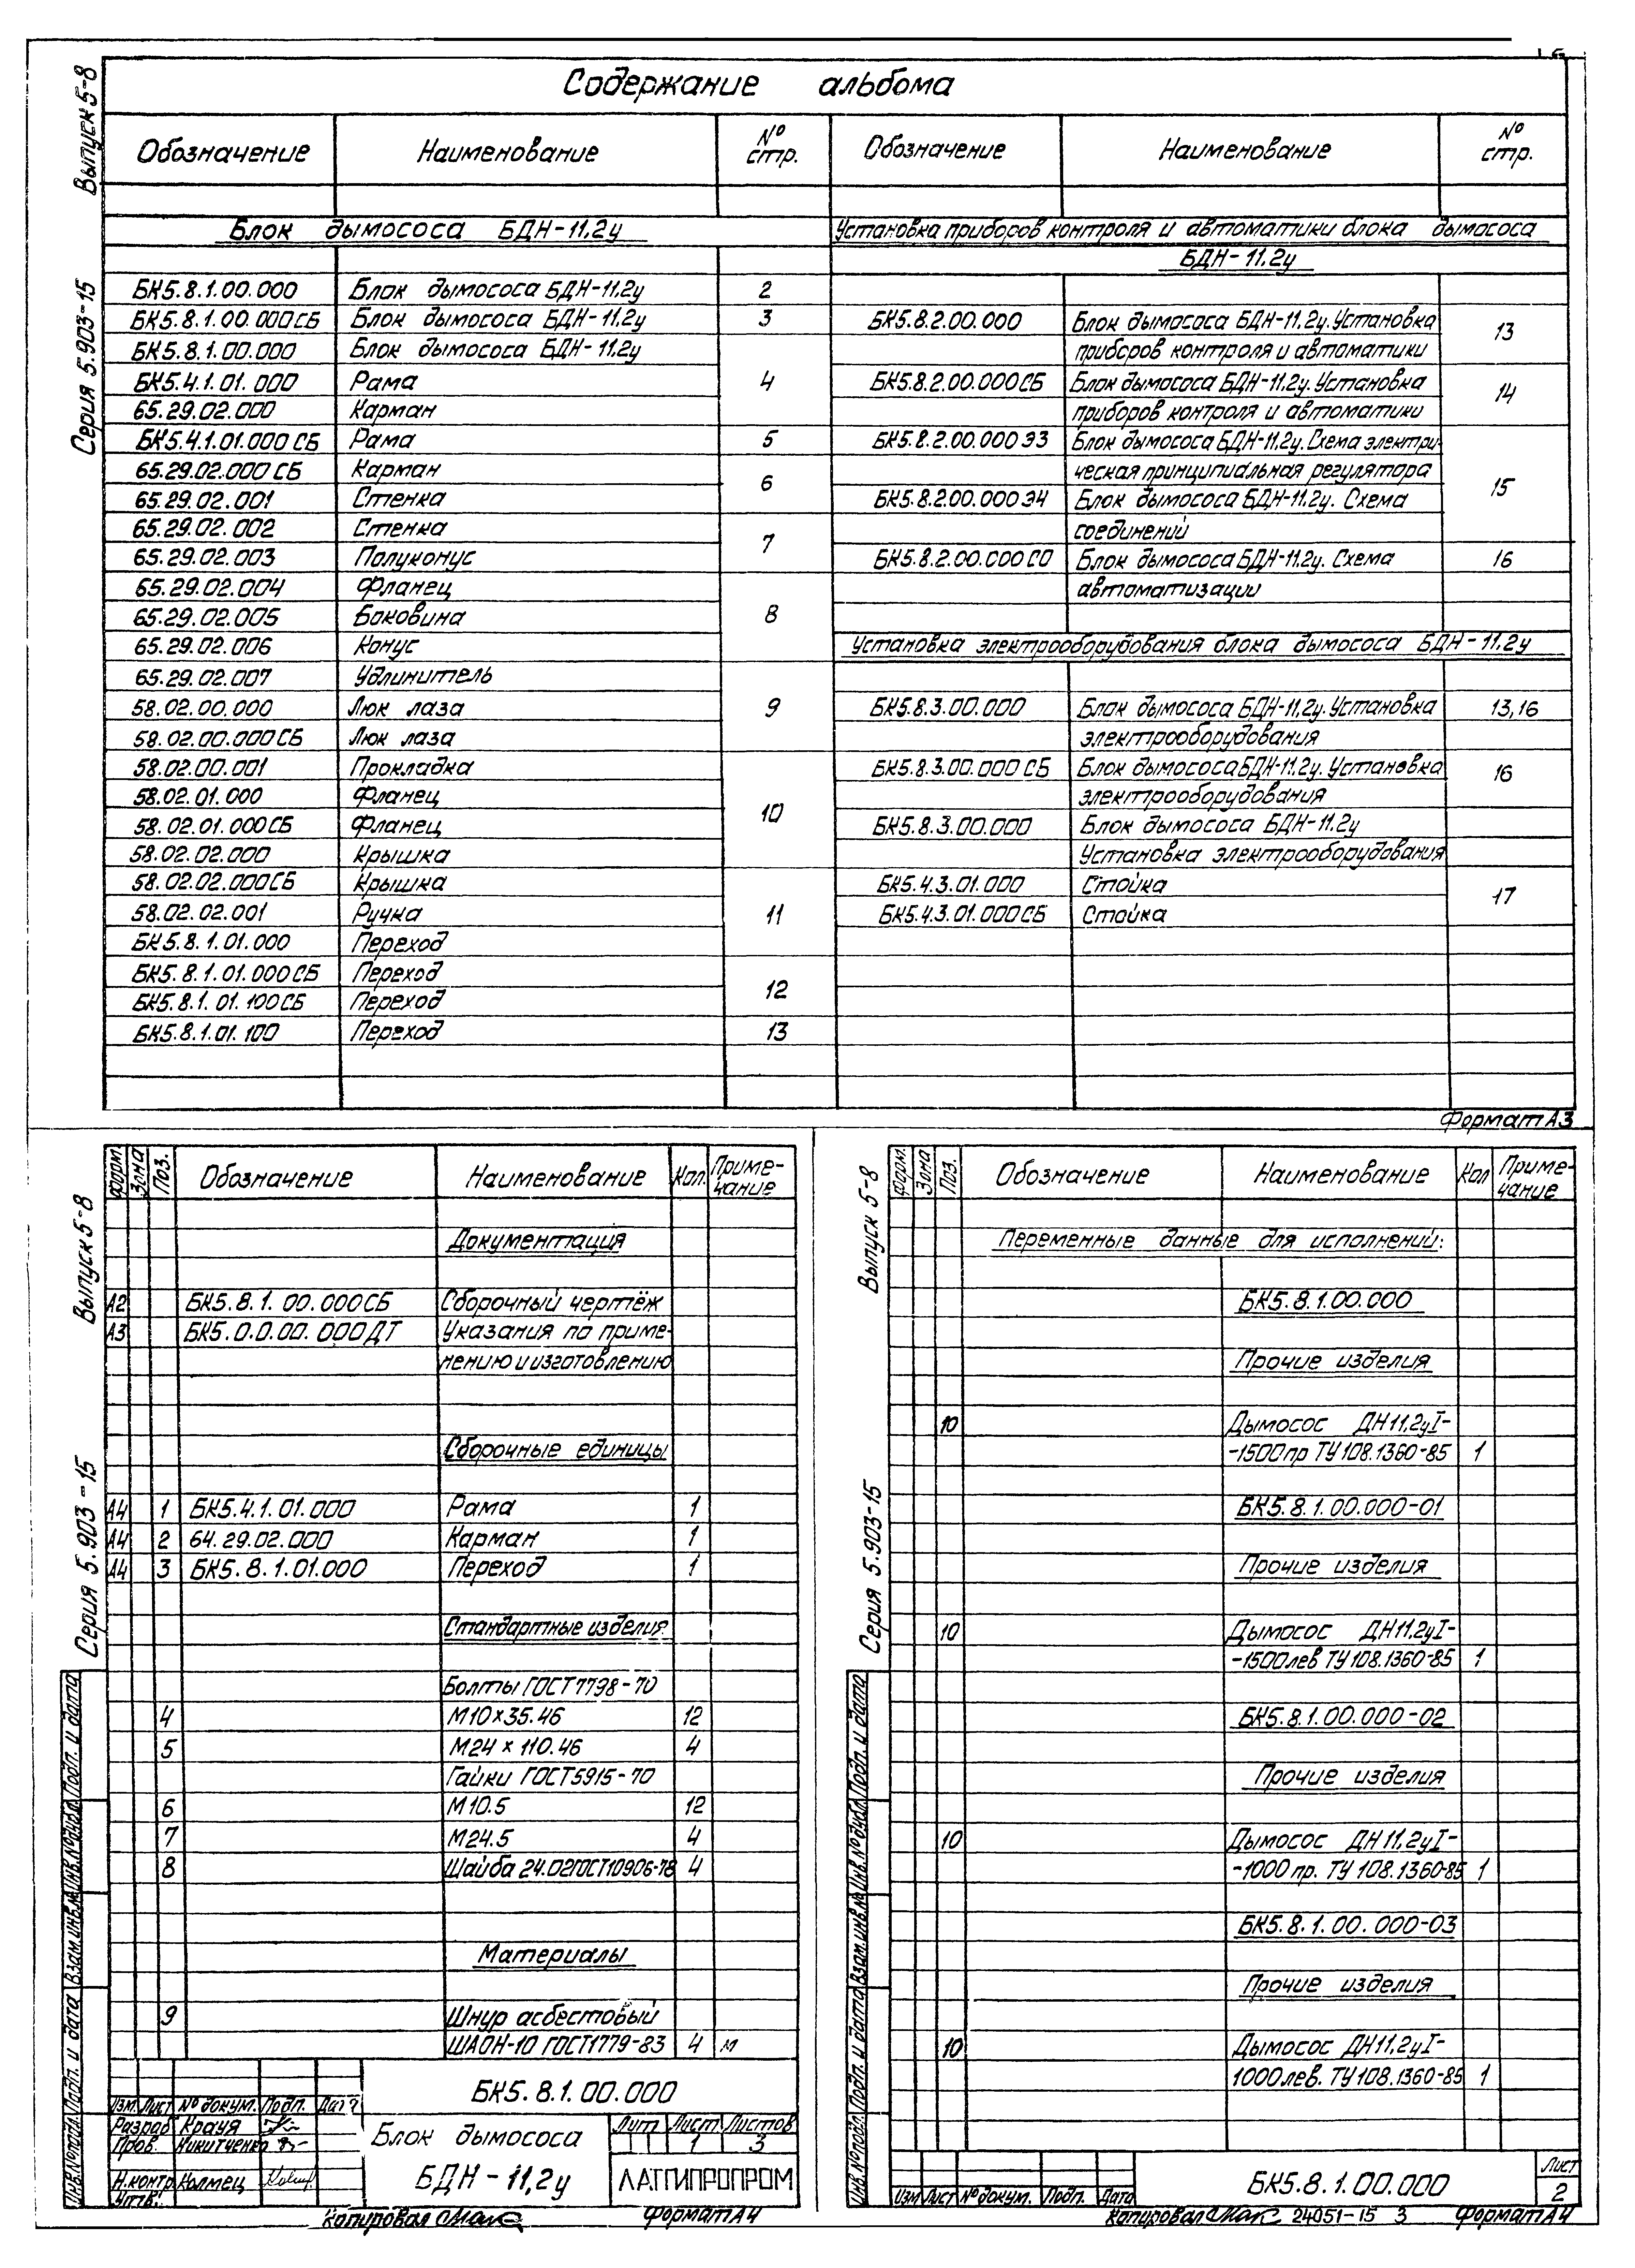 Содержание альбома
Выпуск 5-8
Серия 5.903-15
Обозначение Наименование № стр.
Блок дымососа БДН-11,2у
БК5.8.1.00.000 Блок дымососа БДН-11,2у 2
БК5.8.1.00.000СБ Блок дымососа БДН-11,2у 3
БК5.8.1.00.000 Блок дымососа БДН-11,2у
БК5.4.1.01.000 Рама 4
65.29.02.000 Карман
БК5.4.1.01.000СБ Рама 5
65.29.02.000СБ Карман
65.29.02.001 Стенка 6
65.29.02.002 Стенка
65.29.02.003 Полуконус 7
65.29.02.004 Фланец
65.29.02.005 Боковина 8
65.29.02.006 Конус
65.29.02.007 Удлинитель
58.02.00.000 Люк лаза 9
58.02.00.000СБ Люк лаза
58.02.00.001 Прокладка
58.02.01.000 Фланец
58.02.01.000СБ Фланец 10
58.02.02.000 Крышка
58.02.02.000СБ Крышка
58.02.02.001 Ручка 11
БК5.8.1.01.000 Переход
БК5.8.1.01.000СБ Переход
БК5.8.1.01.100СБ Переход 12
БК5.8.1.01.100 Переход 13
Обозначение Наименование № стр.
Установка приборов контроля и автоматики блока дымососа
БДН-11.2у
БК5.8.2.00.000 Блок дымососа БДН-11,2у. Установка
приборов контроля и автоматики 13
БК5.8.2.00.000СБ Блок дымососа БДН-11.2у. Установка
приборов контроля и автоматики 14
БК5.8.2.00.000Э3 Блок дымососа БДН-11.2у. Схема электри-
ческая принципиальная регулятора
БК5.8.2.00.000Э4 Блок дымососа БДН-11.2у. Схема 15
соединений
БК5.8.2.00.000СО Блок дымососа БДН-11.2у. Схема 16
автоматизации
Установка электрооборудования блока дымососа БДН-11.2у
БК5.8.3.00.000 Блок дымососа БДН-11,2у. Установка 13,16
электрооборудования
БК5.8.3.00.000СБ Блок дымососа БДН-11.2у. Установка 16
электрооборудования
БК5.8.3.00.000 Блок дымососа БДН-11.2у
Установка электрооборудования
БК5.4.3.01.000 Стойка
БК5.4.3.01.000СБ Стойка 17
Формат А3
Выпуск 5-8
Серия 5.903-15
Форм. Зона Поз. Обозначение Наименование Кол. Приме-
чание
Документация
А2 БК5.8.1.00.000СБ Сборочный чертёж
А3 БК5.0.0.00.000ДТ Указания по приме-
нению и изготовлению
Сборочные единицы
А4 1 БК5.4.1.01.000 Рама 1
А4 2 64.29.02.000 Карман 1
А4 3 БК5.8.1.01.000 Переход 1
Стандартные изделия
Болты ГОСТ7798-70
4 М10×35.46 12
5 М24×110.46 4
Гайки ГОСТ5915-70
6 М10.5 12
7 М24.5 4
8 Шайба 24.02ГОСТ10906-78 4
Материалы
9 Шнур асбестовый
ШАОН-10 ГОСТ1779-83 4 м
Инв.№подл. Подп. и дата Взам.инв.№ Инв.№дубл. Подп. и дата
БК5.8.1.00.000
Изм. Лист № докум. Подп. Дата
Разраб Крауя
Пров. Никитченко
Н.контр. Колмец
Утв.
Блок дымососа
БДН-11,2у
Лит Лист Листов
1 3
ЛАТГИПРОПРОМ
Копировал
Формат А4
Выпуск 5-8
Серия 5.903-15
Форм. Зона Поз. Обозначение Наименование Кол Приме-
чание
Переменные данные для исполнений:
БК5.8.1.00.000
Прочие изделия
10 Дымосос ДН11,2уI-
-1500пр ТУ108.1360-85 1
БК5.8.1.00.000-01
Прочие изделия
10 Дымосос ДН11,2уI-
-1500лев ТУ108.1360-85 1
БК5.8.1.00.000-02
Прочие изделия
10 Дымосос ДН11,2уI-
-1000 пр. ТУ108.1360-85 1
БК5.8.1.00.000-03
Прочие изделия
10 Дымосос ДН11,2уI-
1000лев. ТУ108.1360-85 1
Инв.№подл. Подп. и дата Взам.инв.№ Инв.№дубл. Подп. и дата
Изм Лист № докум. Подп. Дата
БК5.8.1.00.000
Лист
2
Копировал 24051-15 3 Формат А4